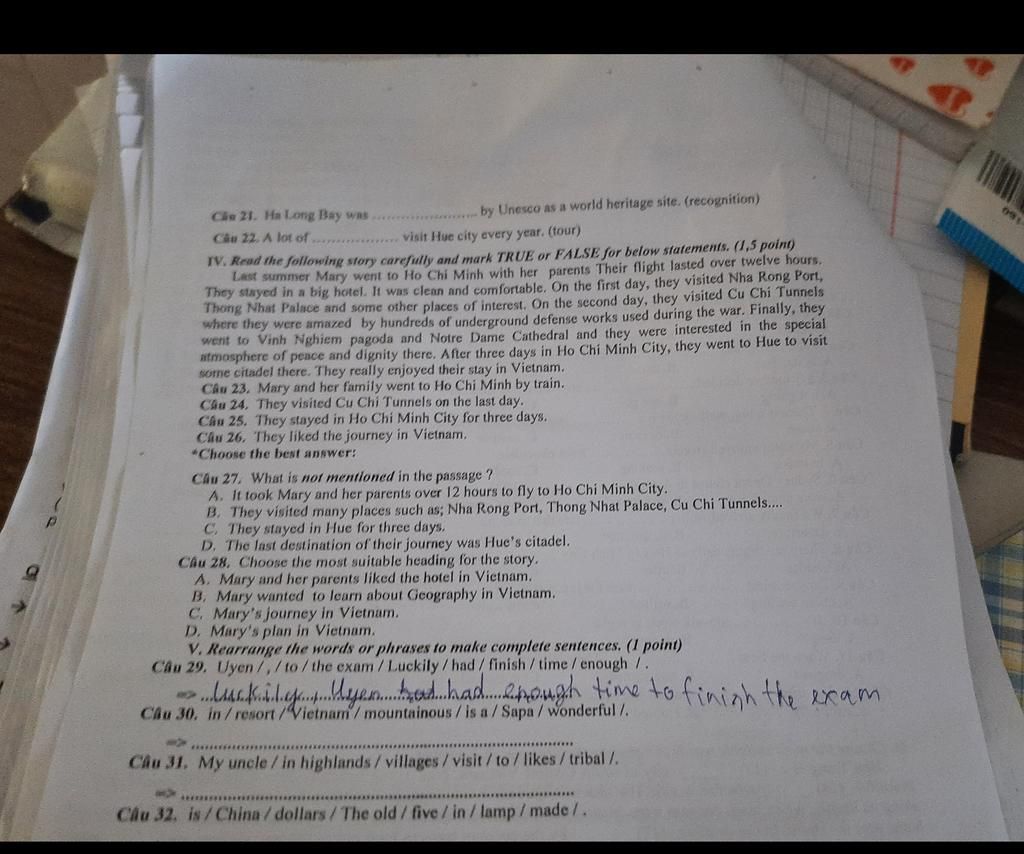 Câu 21. Ha Long Bay was ........................ by Unesco as a world heritage site. (recognition)
Câu 22. A lot of .................... visit Hue city every year. (tour)
IV. Read the following story carefully and mark TRUE or FALSE for below statements. (1,5 point)
Last summer Mary went to Ho Chi Minh with her parents Their flight lasted over twelve hours.
They stayed in a big hotel. It was clean and comfortable. On the first day, they visited Nha Rong Port,
Thong Nhat Palace and some other places of interest. On the second day, they visited Cu Chi Tunnels
where they were amazed by hundreds of underground defense works used during the war. Finally, they
went to Vinh Nghiem pagoda and Notre Dame Cathedral and they were interested in the special
atmosphere of peace and dignity there. After three days in Ho Chi Minh City, they went to Hue to visit
some citadel there. They really enjoyed their stay in Vietnam.
Câu 23. Mary and her family went to Ho Chi Minh by train.
Câu 24. They visited Cu Chi Tunnels on the last day.
Câu 25. They stayed in Ho Chi Minh City for three days.
Câu 26. They liked the journey in Vietnam.
*Choose the best answer:
Câu 27. What is not mentioned in the passage ?
A. It took Mary and her parents over 12 hours to fly to Ho Chi Minh City.
B. They visited many places such as; Nha Rong Port, Thong Nhat Palace, Cu Chi Tunnels....
C. They stayed in Hue for three days.
D. The last destination of their journey was Hue's citadel.
Câu 28. Choose the most suitable heading for the story.
A. Mary and her parents liked the hotel in Vietnam.
B. Mary wanted to learn about Geography in Vietnam.
C. Mary's journey in Vietnam.
D. Mary's plan in Vietnam.
V. Rearrange the words or phrases to make complete sentences. (1 point)
Câu 29. Uyen / , / to / the exam / Luckily / had / finish / time / enough / .
=> Luckily, Uyen had enough time to finish the exam
Câu 30. in / resort / Vietnam / mountainous / is a / Sapa / wonderful /.
=> ........................................................................
Câu 31. My uncle / in highlands / villages / visit / to / likes / tribal /.
=> ........................................................................
Câu 32. is / China / dollars / The old / five / in / lamp / made / .